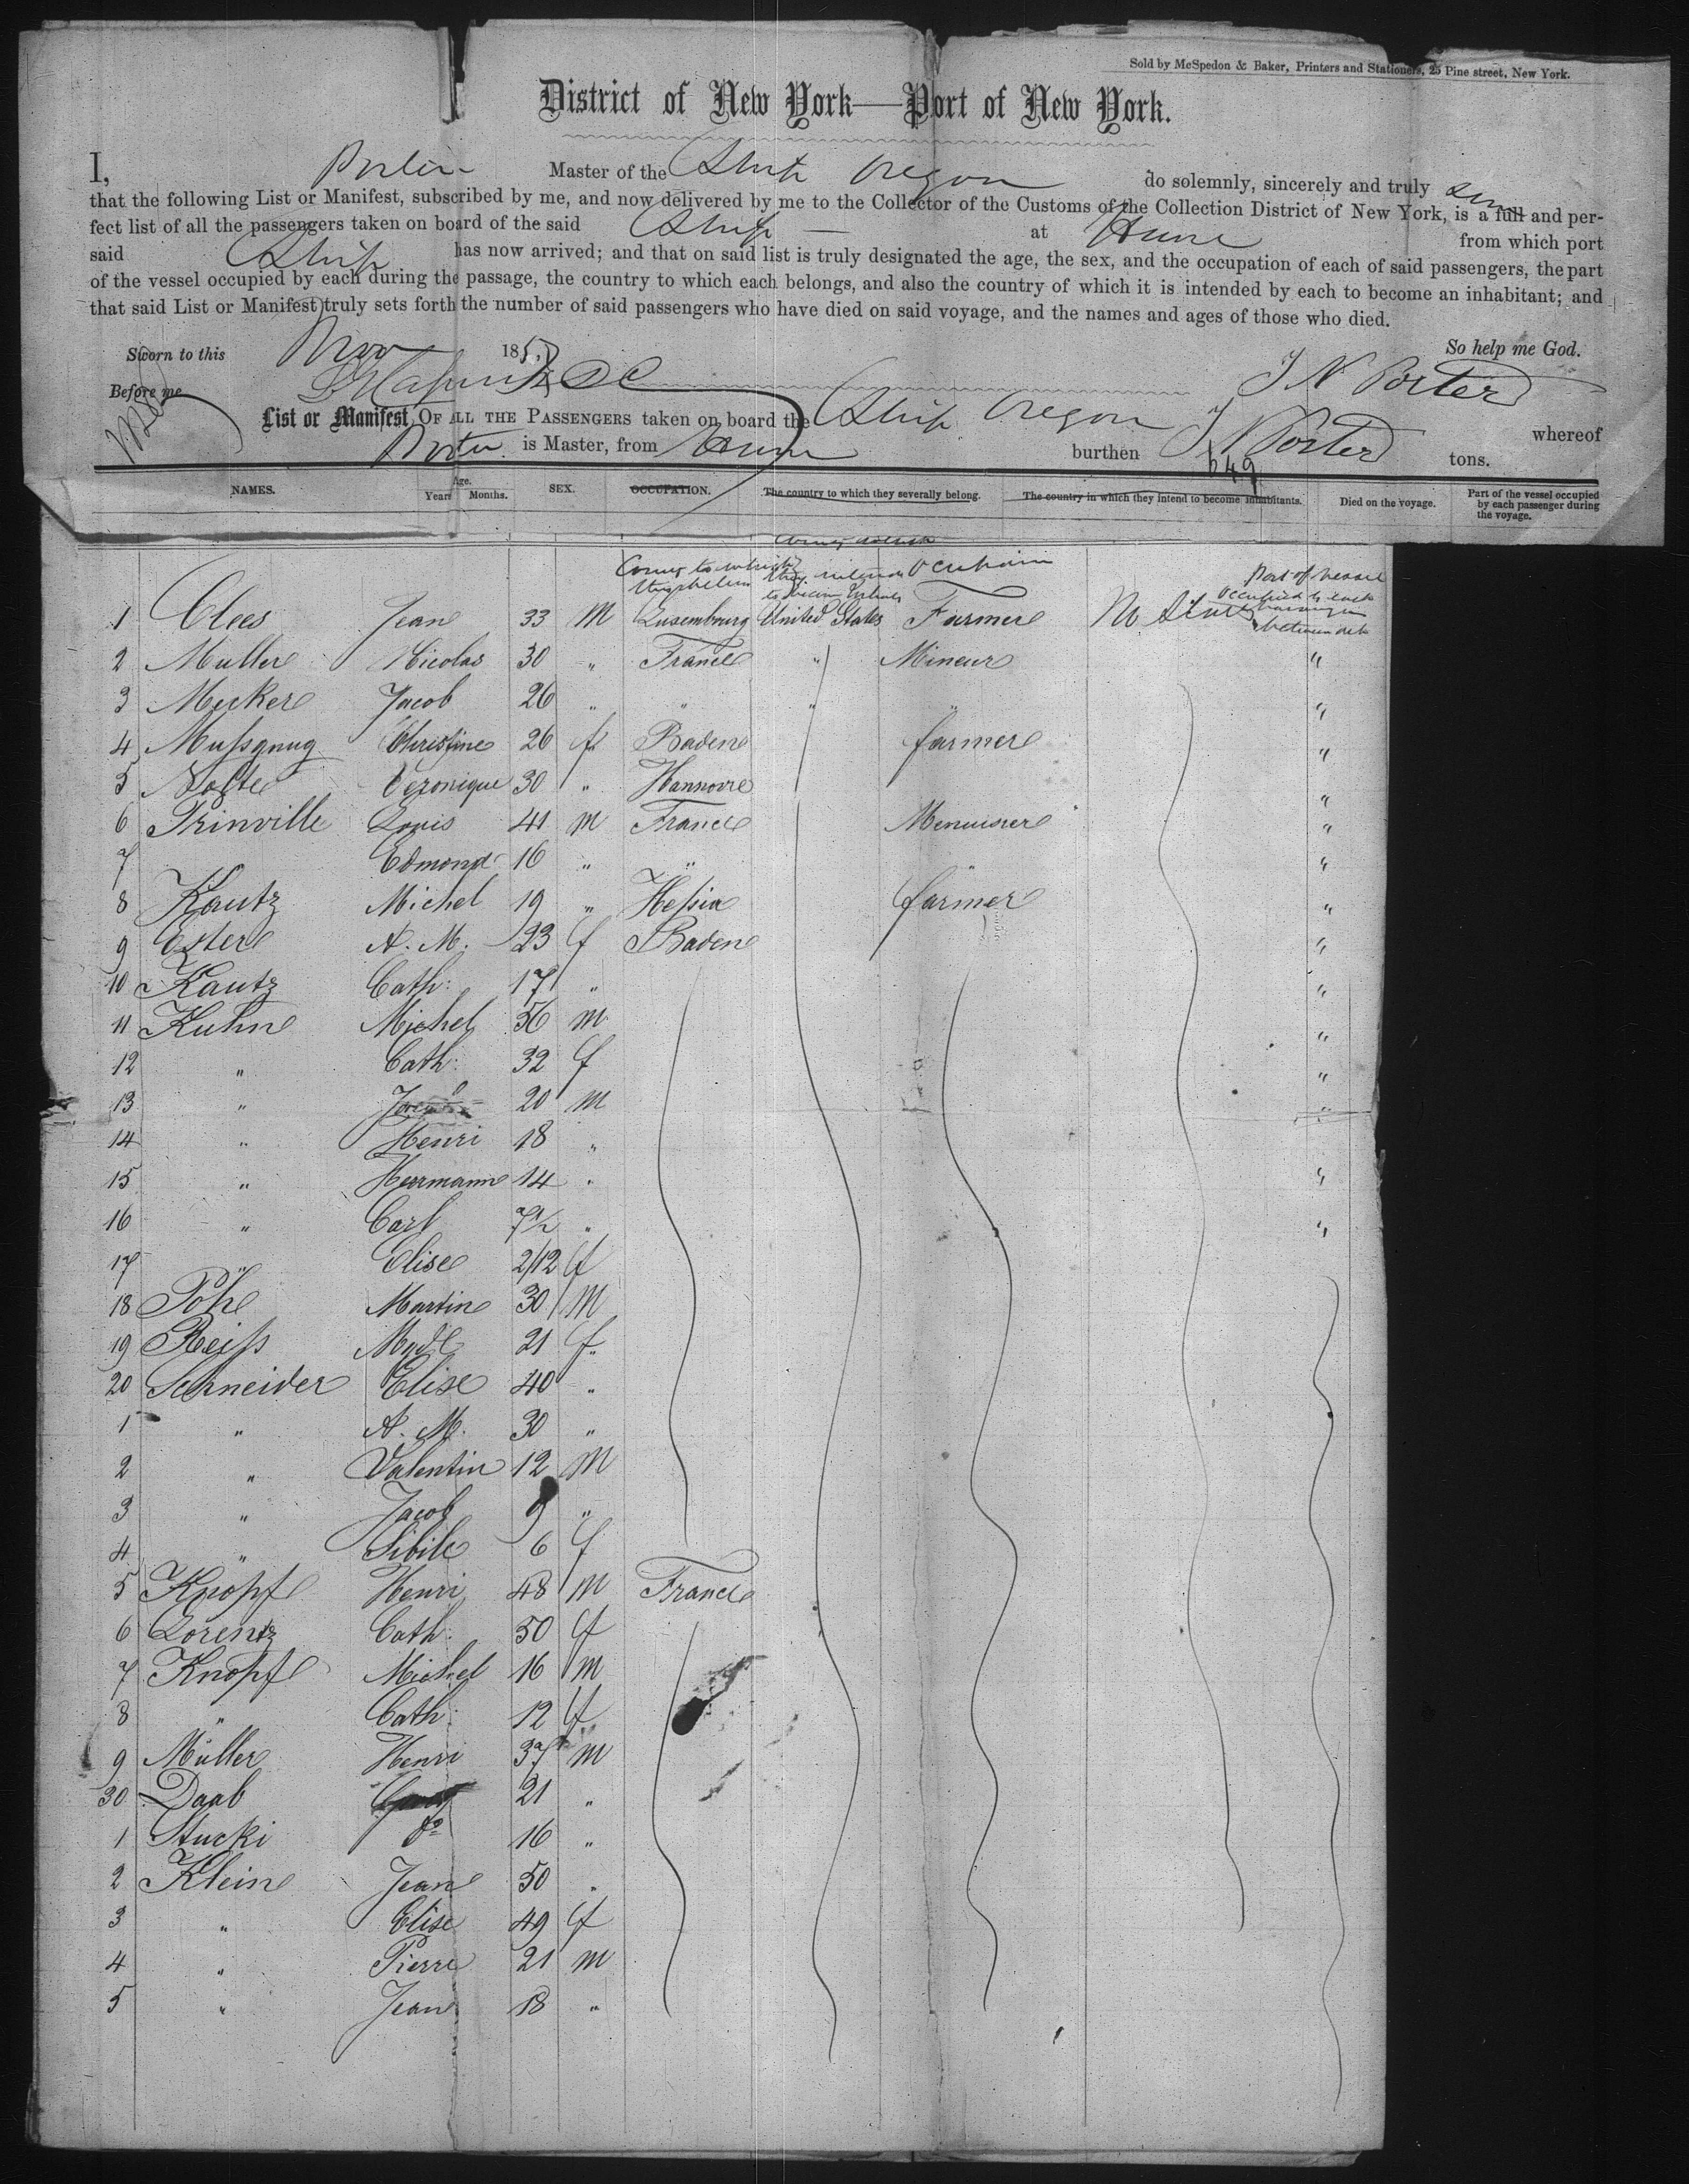 Sold by McSpedon & Baker, Printers and Stationers, 25 Pine street, New York.
District of New York—Port of New York.
I, Porter Master of the Ship Oregon do solemnly, sincerely and truly
that the following List or Manifest, subscribed by me, and now delivered by me to the Collector of the Customs of the Collection District of New York, is a full and per-
fect list of all the passengers taken on board of the said Ship at Havre from which port
said Ship has now arrived; and that on said list is truly designated the age, the sex, and the occupation of each of said passengers, the part
of the vessel occupied by each during the passage, the country to which each belongs, and also the country of which it is intended by each to become an inhabitant; and
that said List or Manifest truly sets forth the number of said passengers who have died on said voyage, and the names and ages of those who died.
Sworn to this Nov 185 So help me God.
Before me J N Porter
List or Manifest OF ALL THE PASSENGERS taken on board the Ship Oregon whereof
Porter is Master, from Havre burthen J N Porter 649 tons.
NAMES. Age. Years Months. SEX. OCCUPATION. The country to which they severally belong. The country in which they intend to become inhabitants. Died on the voyage. Part of the vessel occupied by each passenger during the voyage.
Part of vessel
1 Clees Jean 33 M Luxembourg United States Farmer No
2 Muller Nicolas 30 " France " Mineur "
3 Mecker Jacob 26 " " " " "
4 Mußgnug Christine 26 f Baden farmer "
5 Nolte Veronique 30 " Hannovre "
6 Prinville Louis 41 m France Menuisier "
7 Edmond 16 " " " "
8 Kautz Michel 19 " Heßia farmer "
9 A. M. 23 f Baden "
10 Kautz Cath: 17 " "
11 Kuhn Michel 56 m "
12 " Cath: 32 f "
13 " 20 m "
14 " Henri 18 "
15 " Herrmann 14 " "
16 " Carl 7½ " "
17 " Elise 2/12 f
18 Pohl Martin 30 M
19 Reiß Mgdl 21 f
20 Schneider Elise 40 "
1 " A. M. 30 "
2 " Valentin 12 M
3 " Jacob 9 "
4 " Sibile 6 f
5 Knopf Henri 48 m France
6 Lorentz Cath: 50 f
7 Knopf Michel 16 m
8 " Cath: 12 f
9 Müller Henri 37 m
30 Daab 21 "
1 Stucki do 16 "
2 Klein Jean 50 "
3 " Elise 49 f
4 " Pierre 21 m
5 " Jean 18 "